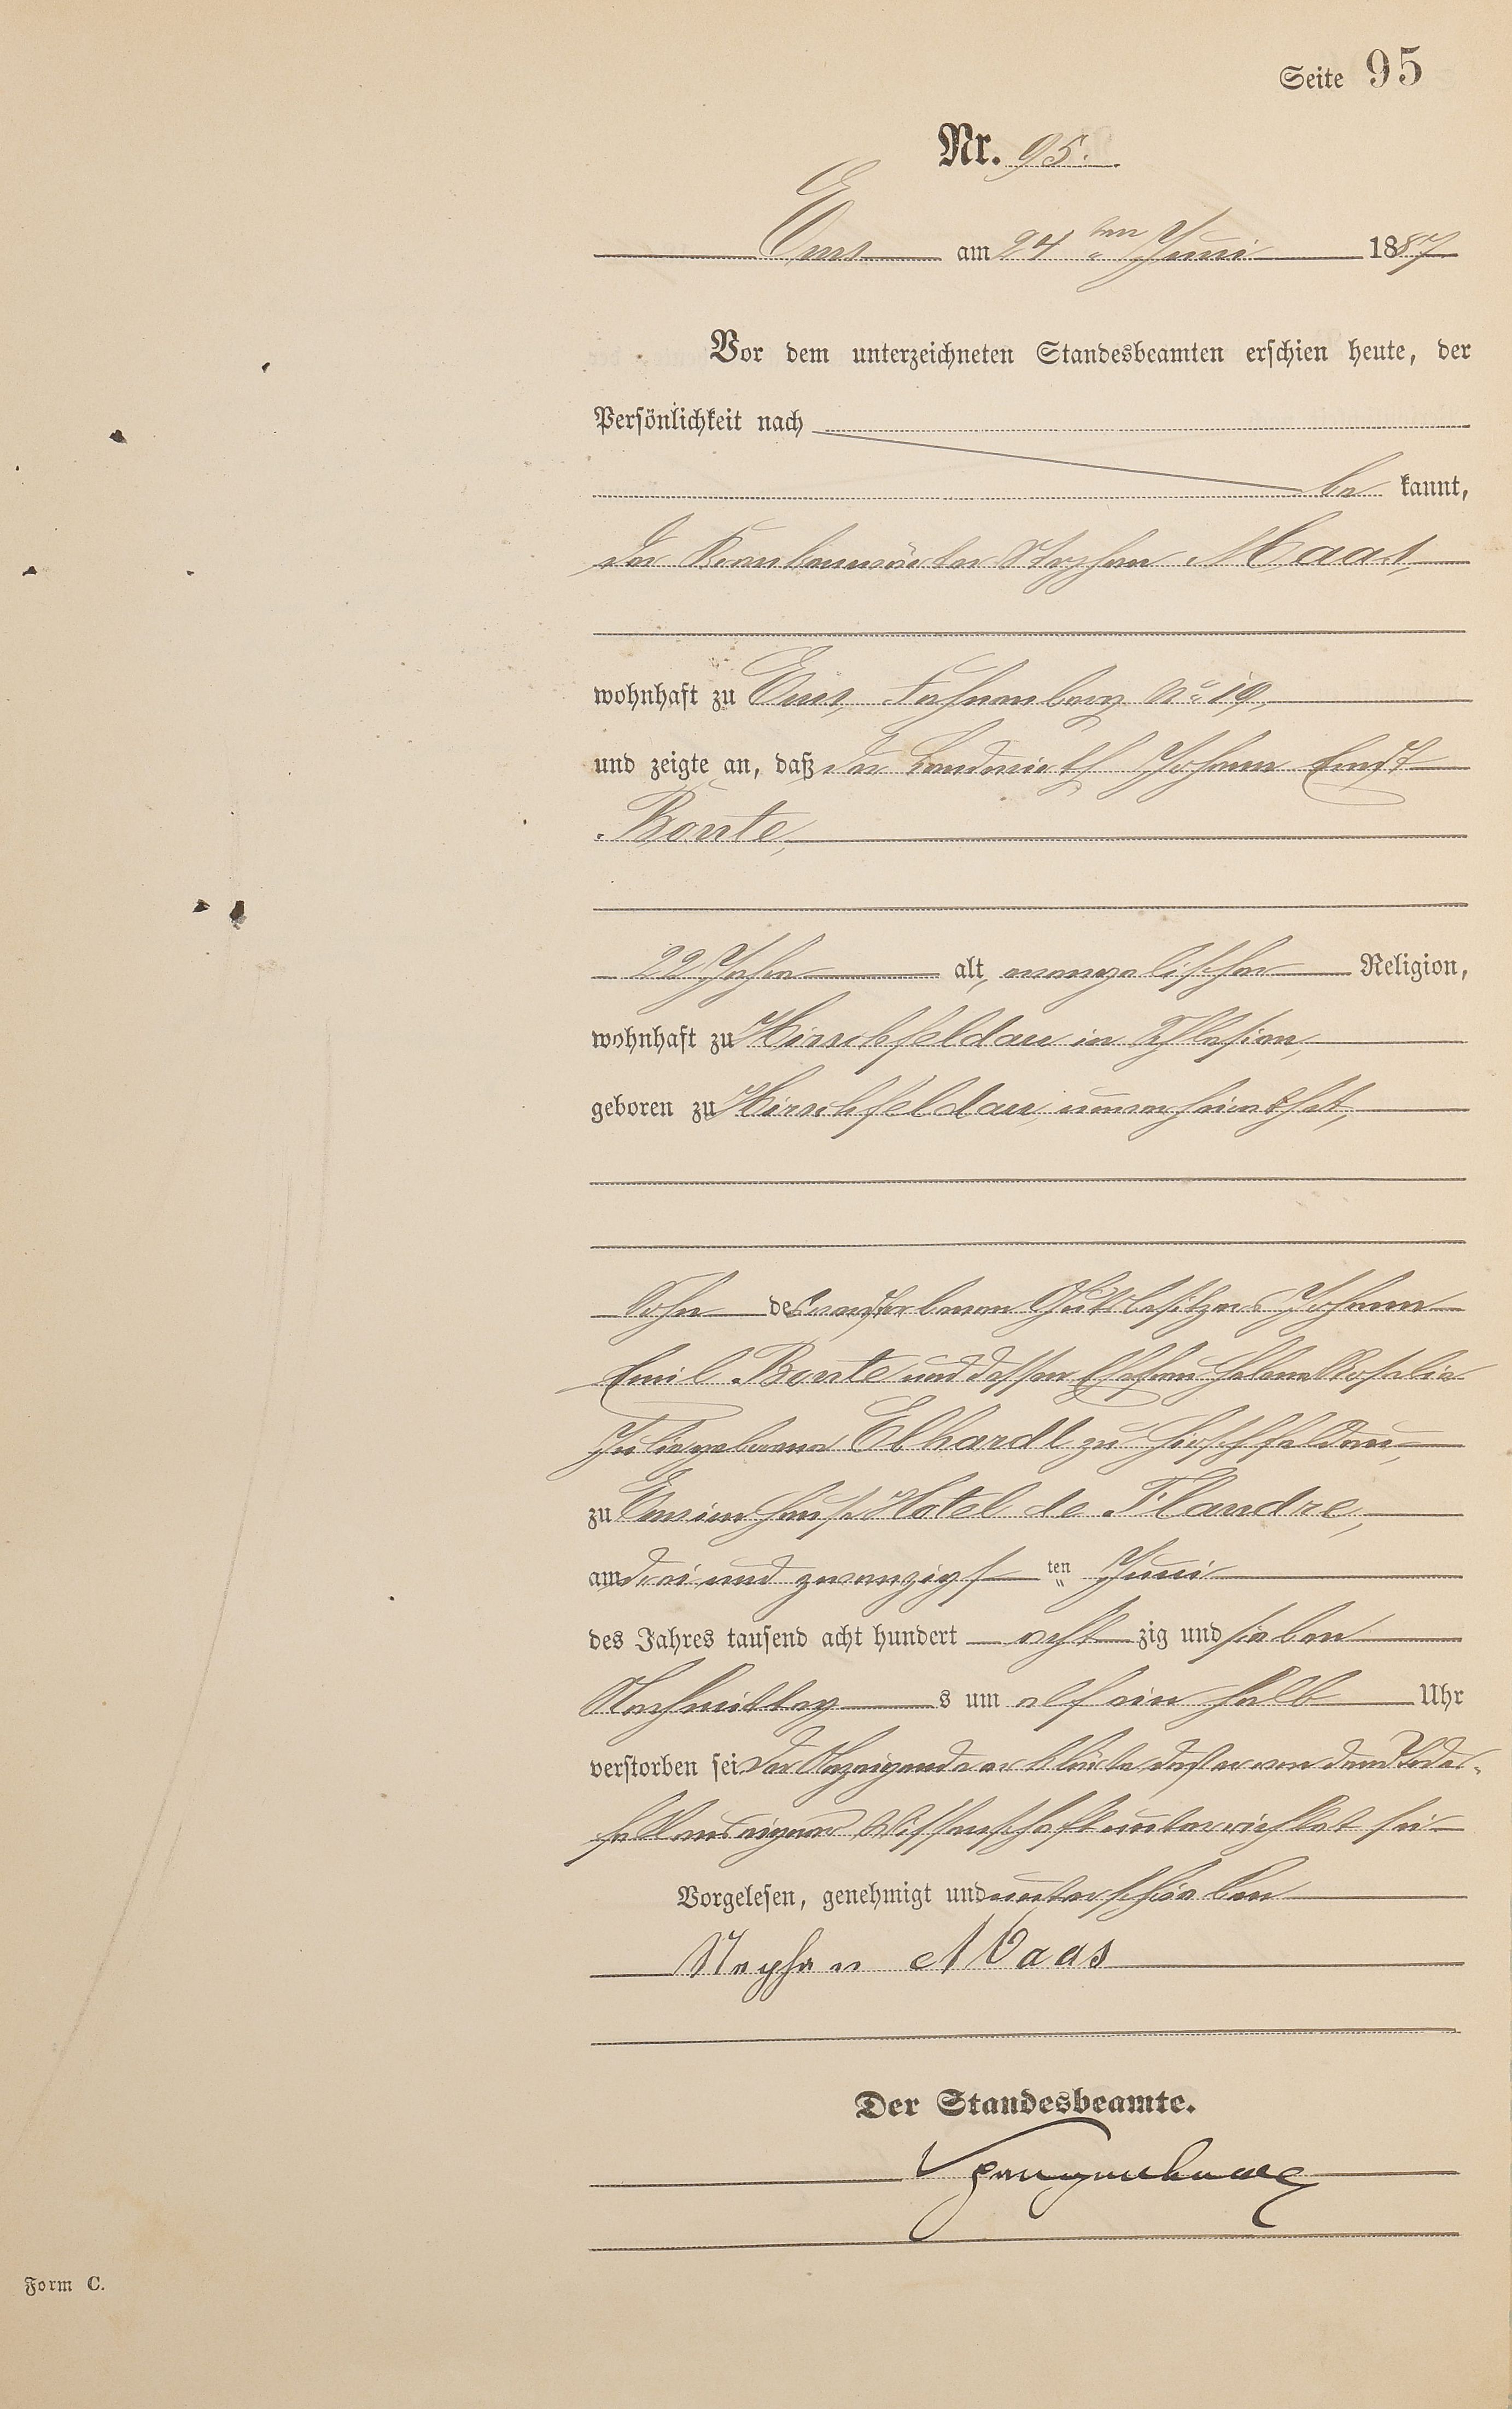 Seite 95
Nr. 95.
Ems am 24ten Juni 1887
Vor dem unterzeichneten Standesbeamten erschien heute, der
Persönlichkeit nach
be kannt,
der Krankenwärter Stephan Maas,
wohnhaft zu Ems, No 19,
und zeigte an, daß der Landwirth Johann Ernst
Bonte,
22 Jahre alt, evangelischer Religion,
wohnhaft zu Hirschfeldau in Schlesien,
geboren zu Hirschfeldau, unverheirathet,
Sohn des verstorbenen Gutsbesitzers Johann
Emil Bonte und dessen Ehefrau Helene Rosalie
Julie geborene Ebhardt zu Hirschfeldau,
zu Ems im Hause Hotel de Flandre,
am drei und zwanzigsten Juni
des Jahres tausend acht hundert acht zig und sieben
Nachmittags um elf ein halb Uhr
verstorben sei. Der Anzeigende erklärte daß er von dem Todes-
fall aus eigener Wissenschaft unterrichtet sei
Vorgelesen, genehmigt und unterschrieben
Stephan Maas
Der Standesbeamte.
Form C.